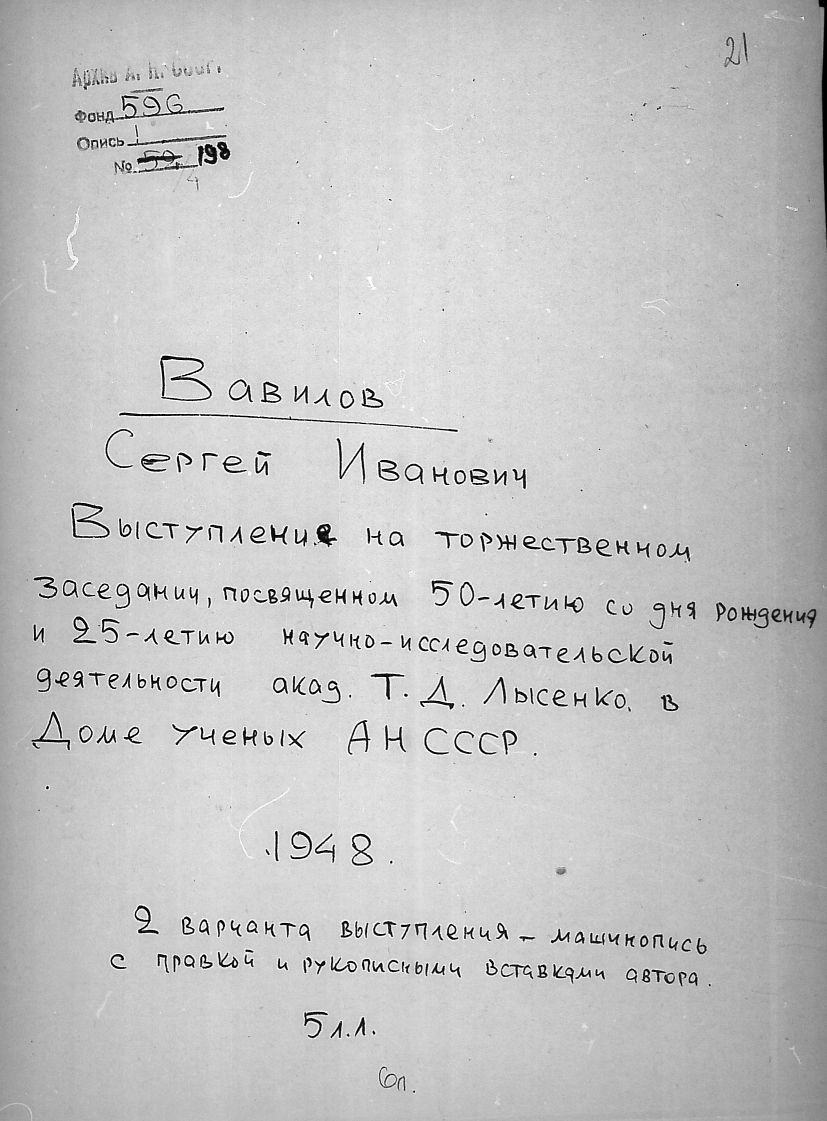 21
Архив А. Н.
Фонд 596
Опись 1
No 59. 198
4
Вавилов
Сергей Иванович
Выступление на торжественном
заседании, посвященном 50-летию со дня рождения
и 25-летию научно-исследовательской
деятельности акад. Т. Д. Лысенко. в
Доме ученых АН СССР.
1948.
2 варианта выступления – машинопись
с правкой и рукописными вставками автора.
5 л.л.
6л.